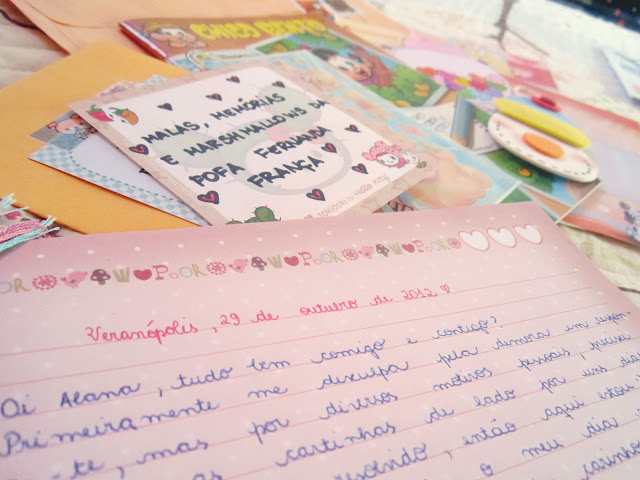 CHICO BENTO
MALAS, MEMÓRIAS
E MARSHMALLOWS DA
FOFA FERNANDA
FRANÇA
Hello Kitty
POOR W POOR W POOR
Veranópolis, 29 de outubro de 2012
Oi Alana, tudo bem comigo e contigo?
Primeiramente me desculpa pela demora em respon-
-te, mas por diversos motivos pessoais, precisei
as cartinhas de lado por uns dias
resolvido, então aqui estou
o meu dia
carinho